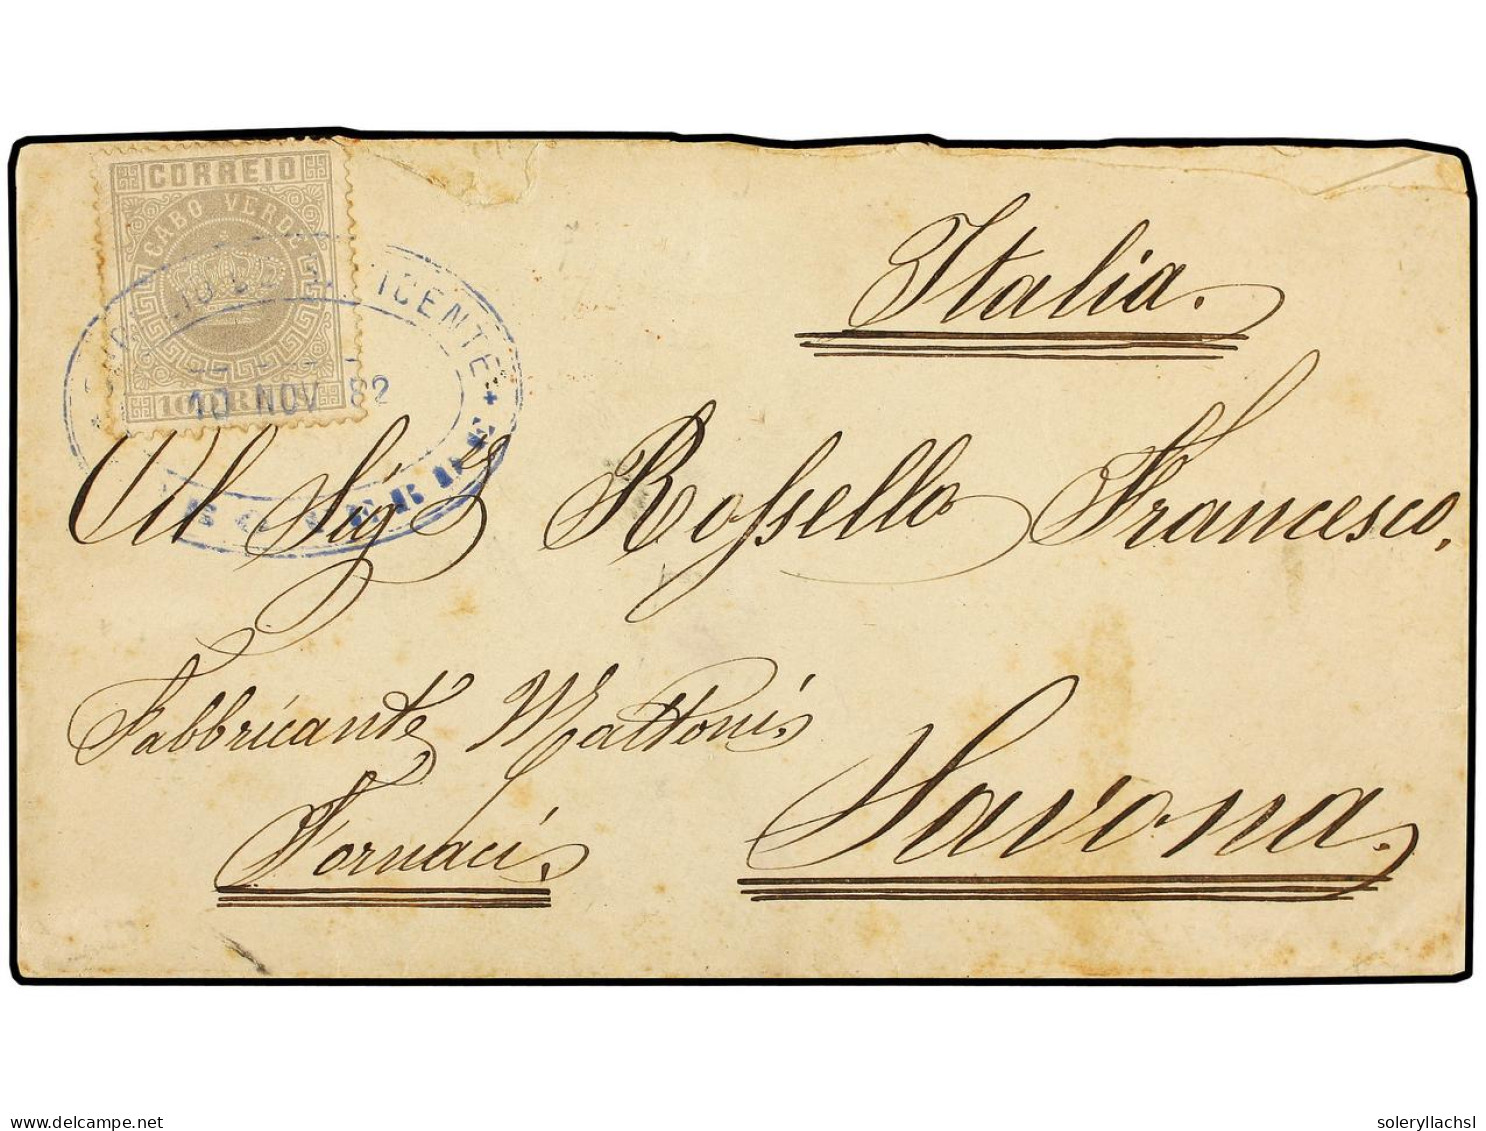 CORREIO
CABO VERDE
VICENTE
10 NOV 82
Italia.
Al Sig.r Rossello Francesco,
Fabbricante Mattoni
Fornaci.
Savona.
delcampe.net
soleryllachsl